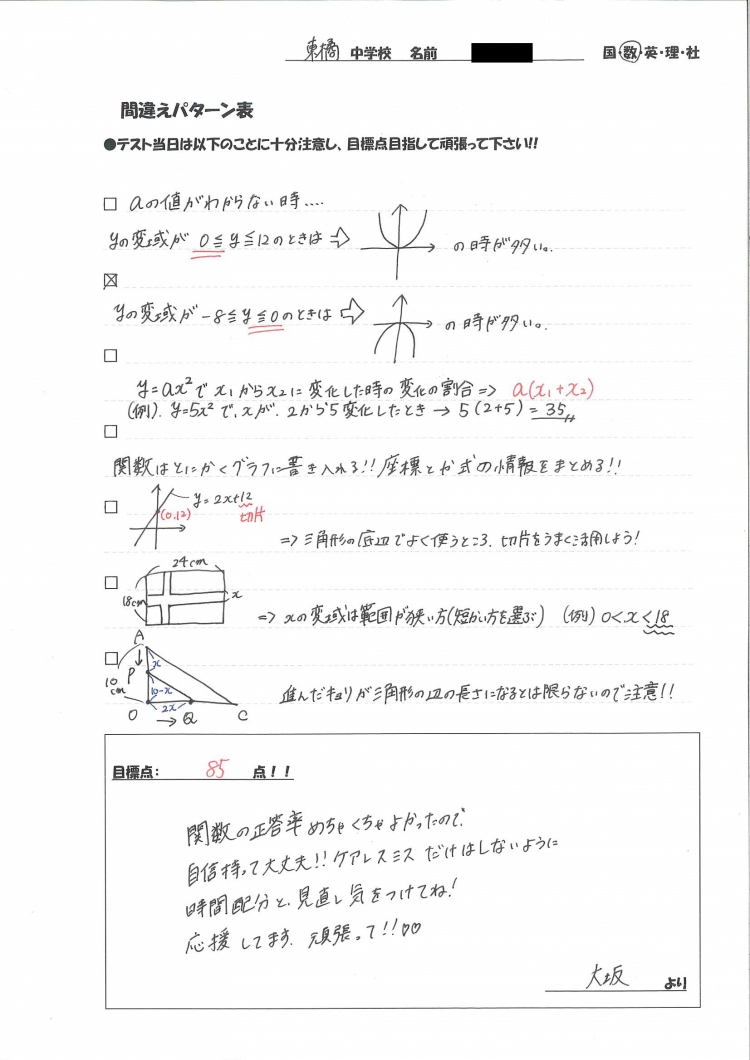 東橘 中学校 名前 国・数・英・理・社
間違えパターン表
●テスト当日は以下のことに十分注意し、目標点目指して頑張って下さい!!
□ aの値がわからない時....
yの変域が 0≦y≦12のときは ⇨ の時が多い。
☒
yの変域が -8≦y≦0のときは ⇨ の時が多い。
□
y=ax²で x₁からx₂に変化した時の変化の割合=> a(x₁+x₂)
(例). y=5x²で、xが、2から5変化したとき → 5(2+5)=35
□
関数はとにかくグラフに書き入れる!!座標とか式の情報をまとめる!!
□ y=2x+12
(0,12) 切片
=> 三角形の底辺でよく使うところ、切片をうまく活用しよう!
□ 24cm
18cm x
=> xの変域は範囲が狭い方(短かい方を選ぶ) (例) 0<x<18
□ A
x
P
10cm
10-x
O 2x Q C
進んだキョリが三角形の辺の長さになるとは限らないので注意!!
目標点: 85 点!!
関数の正答率めちゃくちゃよかったので、
自信持って大丈夫!!ケアレスミスだけはしないように
時間配分と、見直し気をつけてね!
応援してます、頑張って!!♡♡
大坂 より